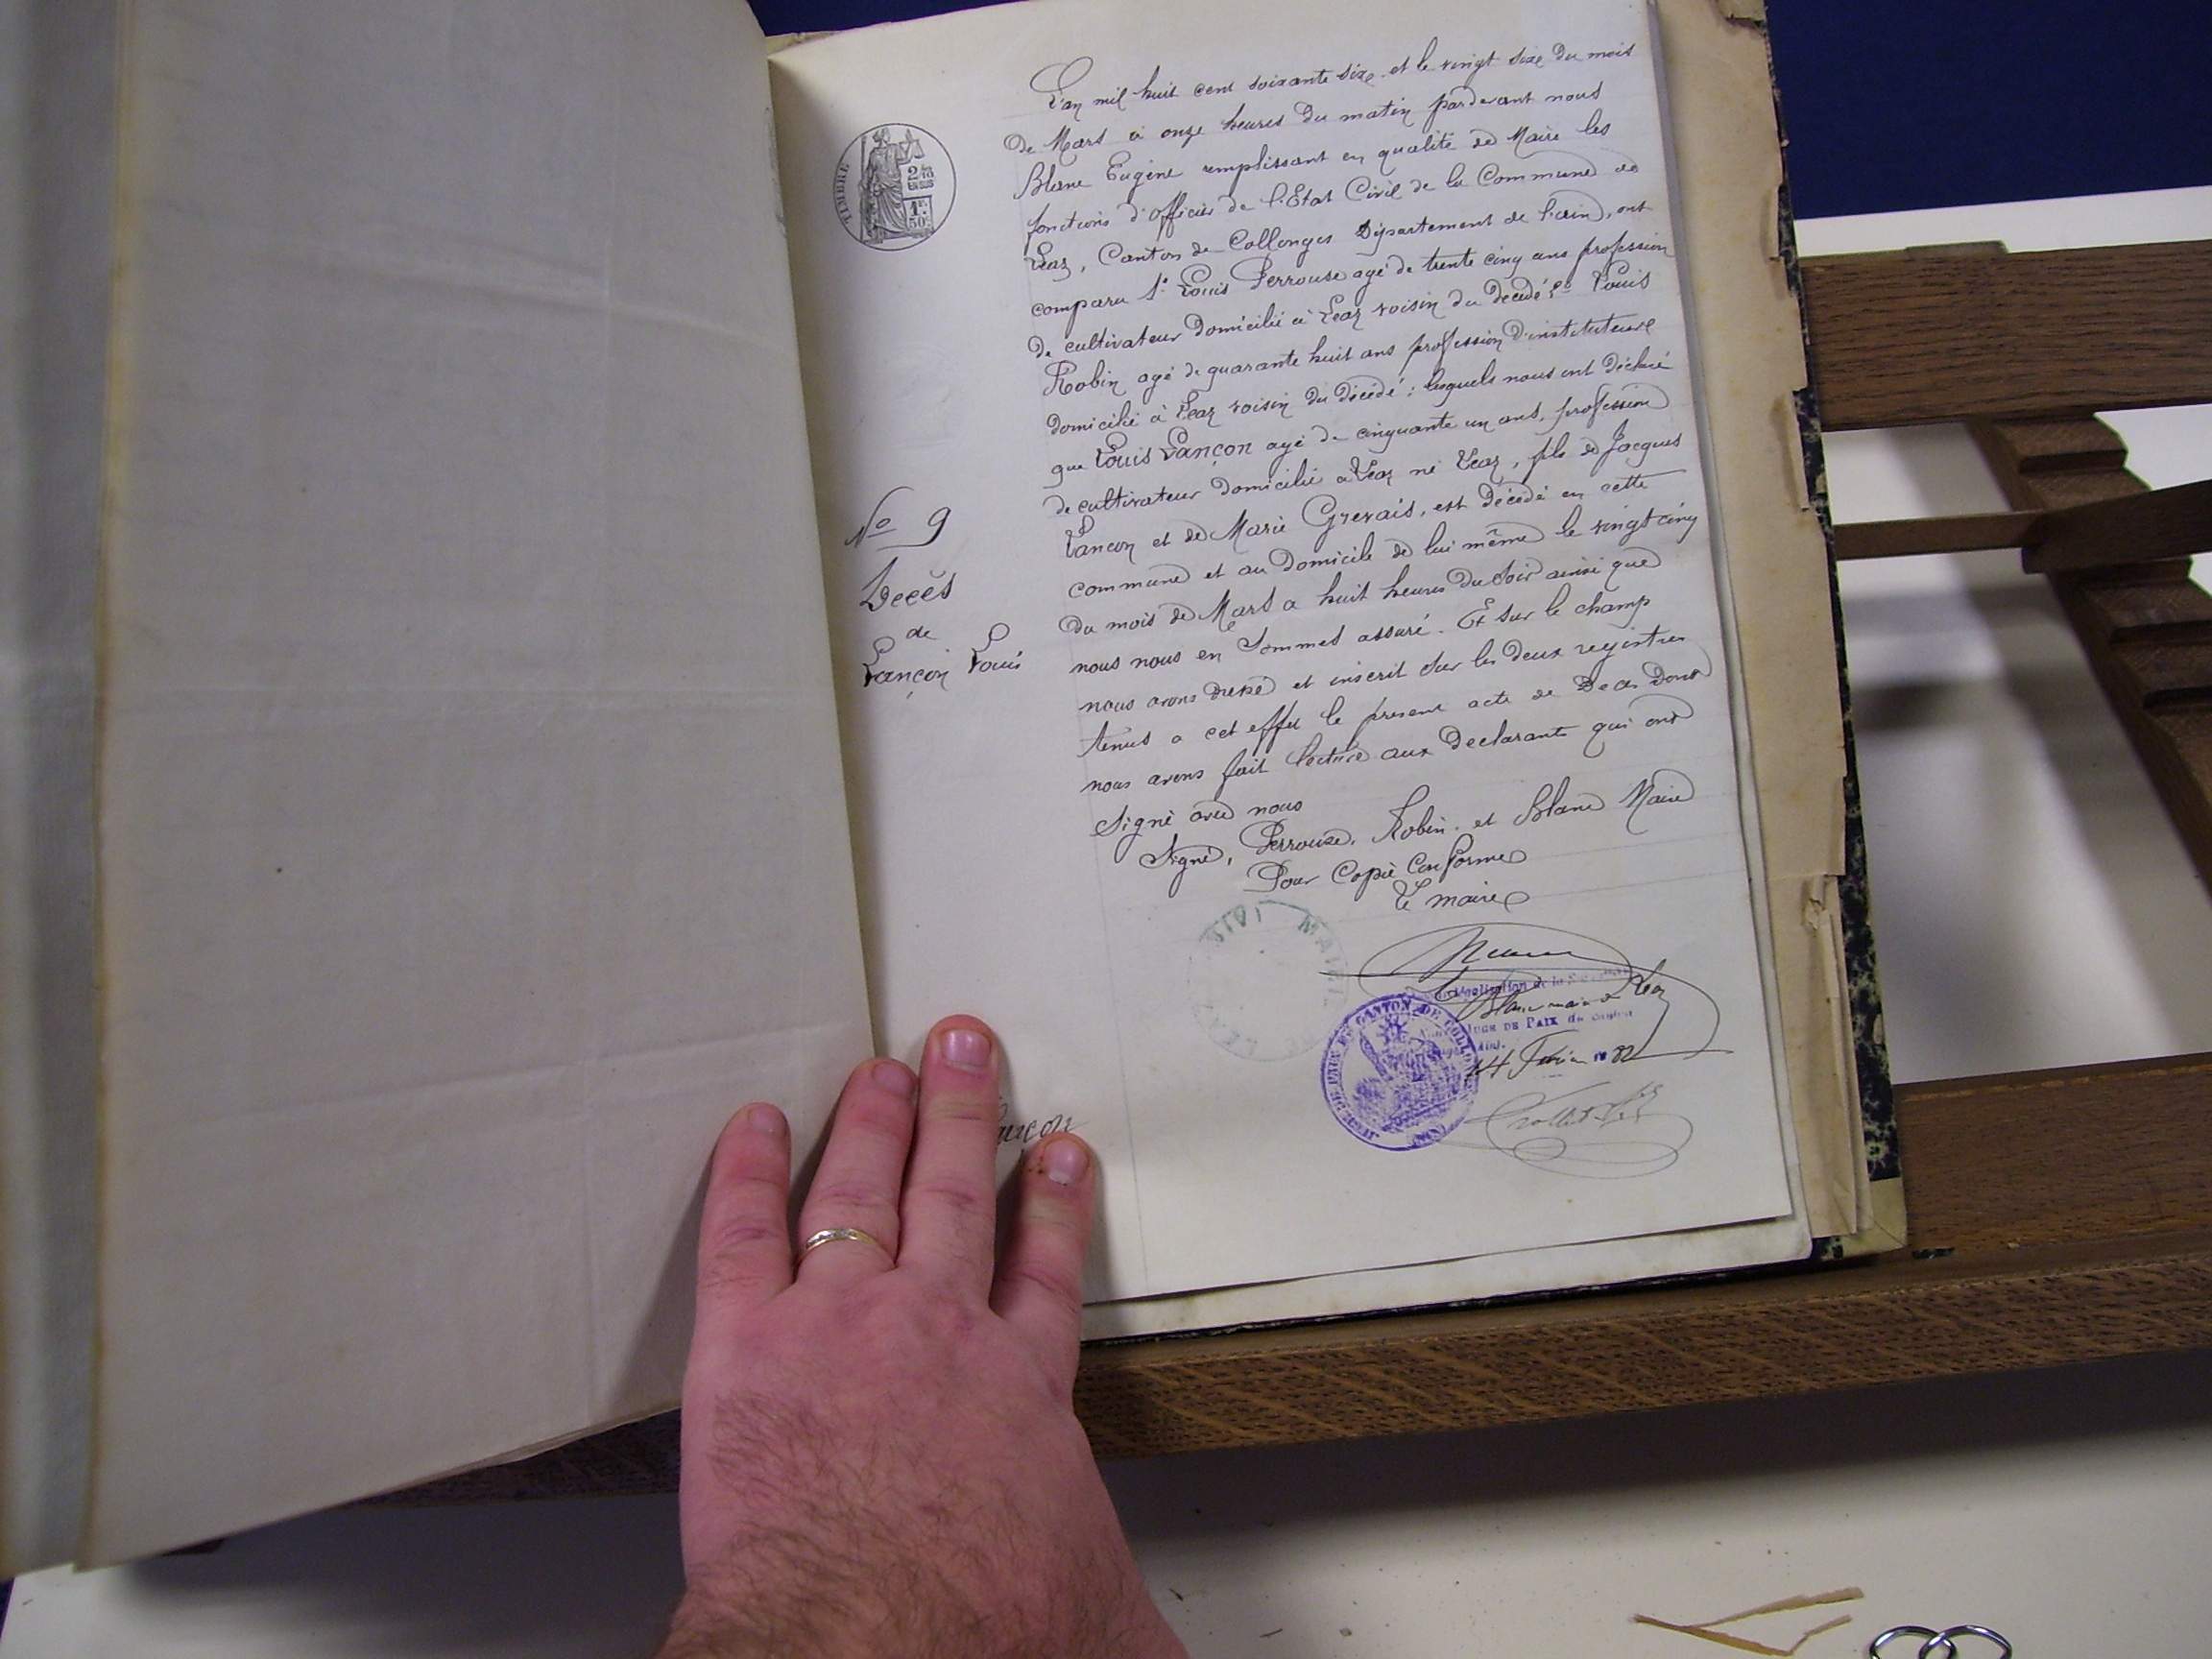 L'an mil huit cent soixante six et le vingt six du mois
de Mars à onze heures du matin pardevant nous
Blanc Eugène remplissant en qualité de Maire les
fonctions d'officier de l'Etat Civil de la Commune de
Léaz, Canton de Collonges Département de l'ain, ont
comparu 1° Louis Perrouse agé de trente cinq ans profession
de cultivateur domicilié à Léaz voisin du décédé 2° Louis
Robin agé de quarante huit ans profession d'instituteur
domicilié à Léaz voisin du décédé : lesquels nous ont déclaré
que Louis Lançon agé de cinquante un ans, profession
de cultivateur domicilié a Léaz né Léaz, fils de Jacques
Lançon et de Marie Grevais, est décédé en cette
commune et au domicile de lui même le vingt cinq
du mois de Mars a huit heures du soir ainsi que
nous nous en sommes assuré. Et sur le champ
nous avons dressé et inscrit sur les deux registres
tenus a cet effet le present acte de Deces Dont
nous avons fait lecture aux declarants qui ont
Signé avec nous
Signé, Perrouse, Robin et Blanc Maire
Pour Copie Conforme
Le maire
TIMBRE
2/10
EN SUS
1F.
50C.
No 9
Décès
de
Lançon Louis
MAIRIE
LÉAZ
Légalisation de la
Blanc maire de Léaz
JUGE DE PAIX du canton
14 Février 1882
JUSTICE DE PAIX DU CANTON DE COLLONGES
(AIN)
ançon